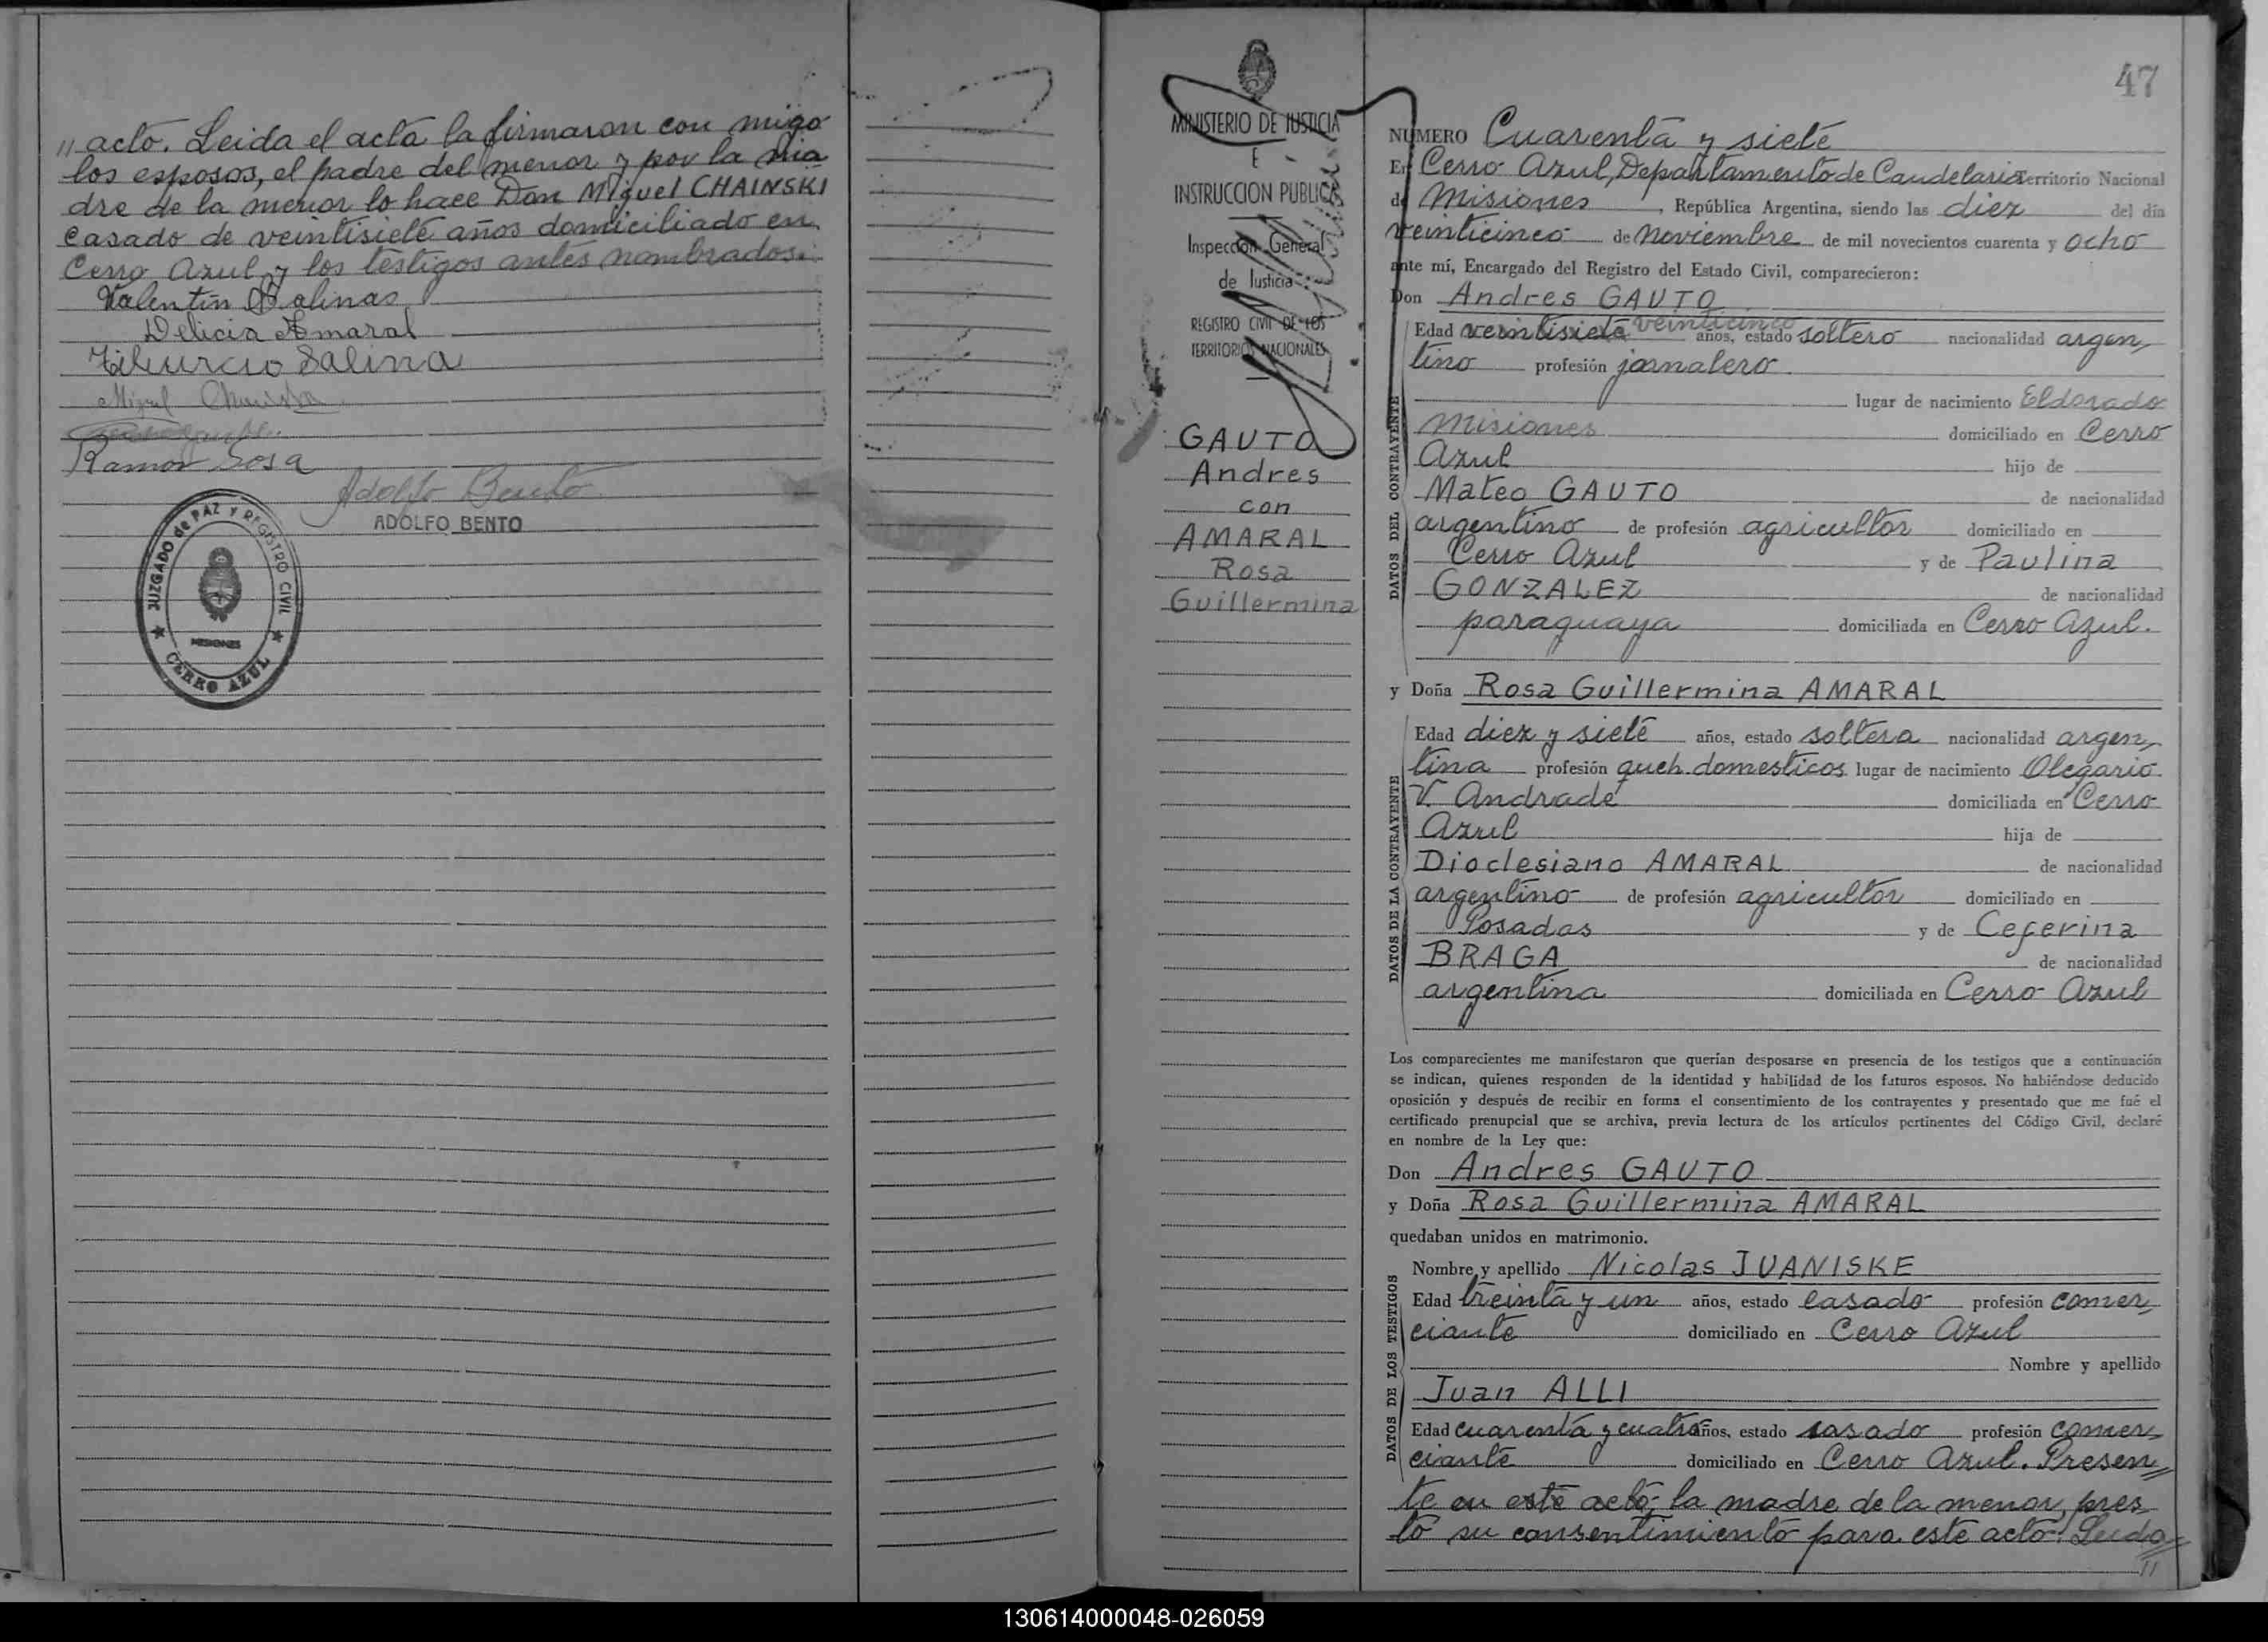 // acto. Leida el acta la firmaron con migo
los esposos, el padre del menor y por la ma
dre de la menor lo hace Don Miguel CHAINSKI
casado de veintisiete años domiciliado en
Cerro Azul y los testigos antes nombrados.
Valentin Salinas
Delicia Amaral
Tiburcio Salina
Miguel
Ramon Sosa
Adolfo Bento
ADOLFO BENTO
JUZGADO de PAZ Y REGISTRO CIVIL
MISIONES
★ CERRO AZUL ★
MINISTERIO DE JUSTICIA
E
INSTRUCCION PUBLICA
Inspección General
de Justicia
REGISTRO CIVIL DE LOS
TERRITORIOS NACIONALES
GAUTO
Andres
con
AMARAL
Rosa
Guillermina
47
NUMERO Cuarenta y siete
En Cerro Azul, Departamento de Candelaria Territorio Nacional
de Misiones, República Argentina, siendo las diez del día
veinticinco de noviembre de mil novecientos cuarenta y ocho
ante mí, Encargado del Registro del Estado Civil, comparecieron:
Don Andres GAUTO
veinticinco
Edad veintisiete años, estado soltero nacionalidad argen,
tino profesión jornalero
lugar de nacimiento Eldorado
Misiones domiciliado en Cerro
Azul hijo de
Mateo GAUTO de nacionalidad
argentino de profesión agricultor domiciliado en
Cerro Azul y de Paulina
GONZALEZ de nacionalidad
paraguaya domiciliada en Cerro Azul.
DATOS DEL CONTRAYENTE
y Doña Rosa Guillermina AMARAL
Edad diez y siete años, estado soltera nacionalidad argen,
tina profesión queh. domesticos lugar de nacimiento Olegario
V. Andrade domiciliada en Cerro
Azul hija de
Dioclesiano AMARAL de nacionalidad
argentino de profesión agricultor domiciliado en
Posadas y de Ceferina
BRAGA de nacionalidad
argentina domiciliada en Cerro Azul
DATOS DE LA CONTRAYENTE
Los comparecientes me manifestaron que querían desposarse en presencia de los testigos que a continuación
se indican, quienes responden de la identidad y habilidad de los futuros esposos. No habiéndose deducido
oposición y después de recibir en forma el consentimiento de los contrayentes y presentado que me fué el
certificado prenupcial que se archiva, previa lectura de los artículos pertinentes del Código Civil, declaré
en nombre de la Ley que:
Don Andres GAUTO
y Doña Rosa Guillermina AMARAL
quedaban unidos en matrimonio.
Nombre y apellido Nicolas JUANISKE
Edad treinta y un años, estado casado profesión comer,
ciante domiciliado en Cerro Azul
Nombre y apellido
Juan ALLI
Edad cuarenta y cuatro años, estado casado profesión comer,
ciante domiciliado en Cerro Azul. Presen
DATOS DE LOS TESTIGOS
te en este acto; la madre de la menor, pres
tó su consentimiento para este acto. Leida
//
130614000048-026059